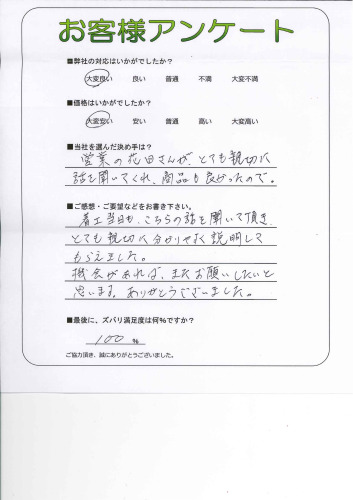 お客様アンケート
■弊社の対応はいかがでしたか?
大変良い 良い 普通 不満 大変不満
■価格はいかがでしたか?
大変安い 安い 普通 高い 大変高い
■当社を選んだ決め手は?
営業の花田さんが、とても親切に
話を聞いてくれ、商品も良かったので。
■ご感想・ご要望などをお書き下さい。
着工当日も、こちらの話を聞いて頂き、
とても親切に分かりやすく説明して
もらえました。
機会があれば、またお願いしたいと
思います。ありがとうございました。
■最後に、ズバリ満足度は何%ですか?
100 %
ご協力頂き、誠にありがとうございました。